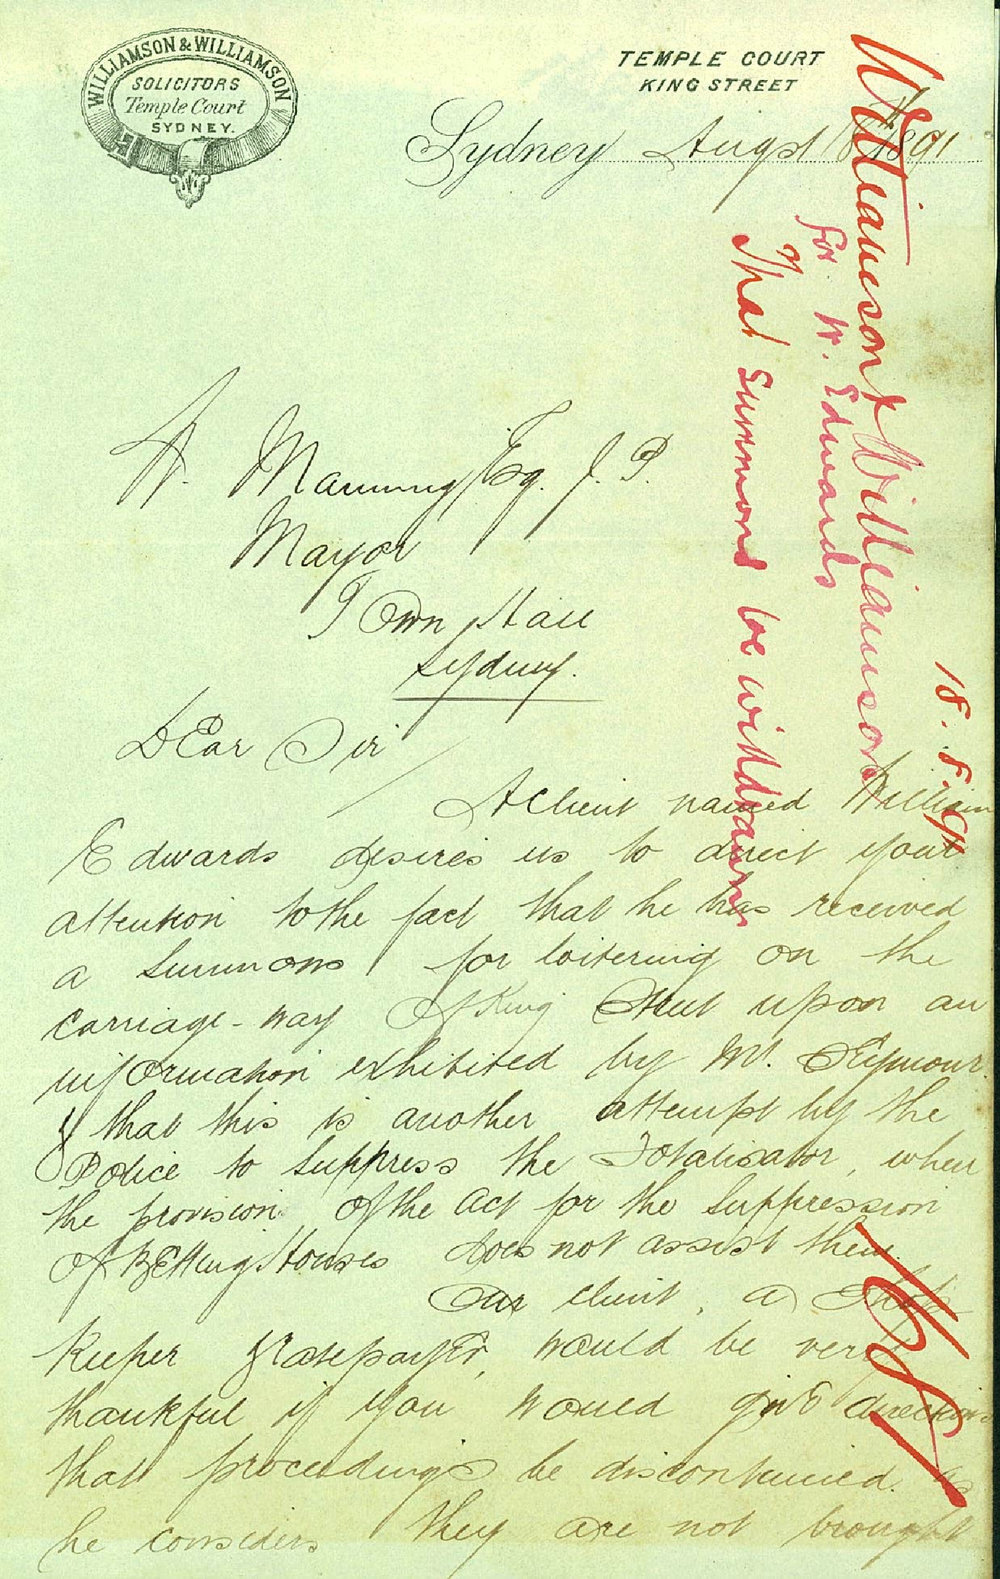 WILLIAMSON & WILLIAMSON
SOLICITORS
Temple Court
SYDNEY.
TEMPLE COURT
KING STREET
Sydney Augst 18th 1891
W. Manning Esq. J. P.
Mayor
Town Hall
Sydney.
Dear Sir
A Client named William
Edwards desires us to direct your
attention to the fact that he has received
a Summons for loitering on the
carriage-way of King Street upon an
information exhibited by Mr. Seymour.
& that this is another attempt by the
Police to suppress the Totalisator, when
the provision of the Act for the Suppression
of Betting Houses does not assist them.
Our client, a Shop
Keeper & Ratepayer, would be very
thankful if you would give directions
that proceedings be discontinued. as
he considers they are not brought
Williamson & Williamson
for W. Edwards
That summons be withdrawn
18.8.91